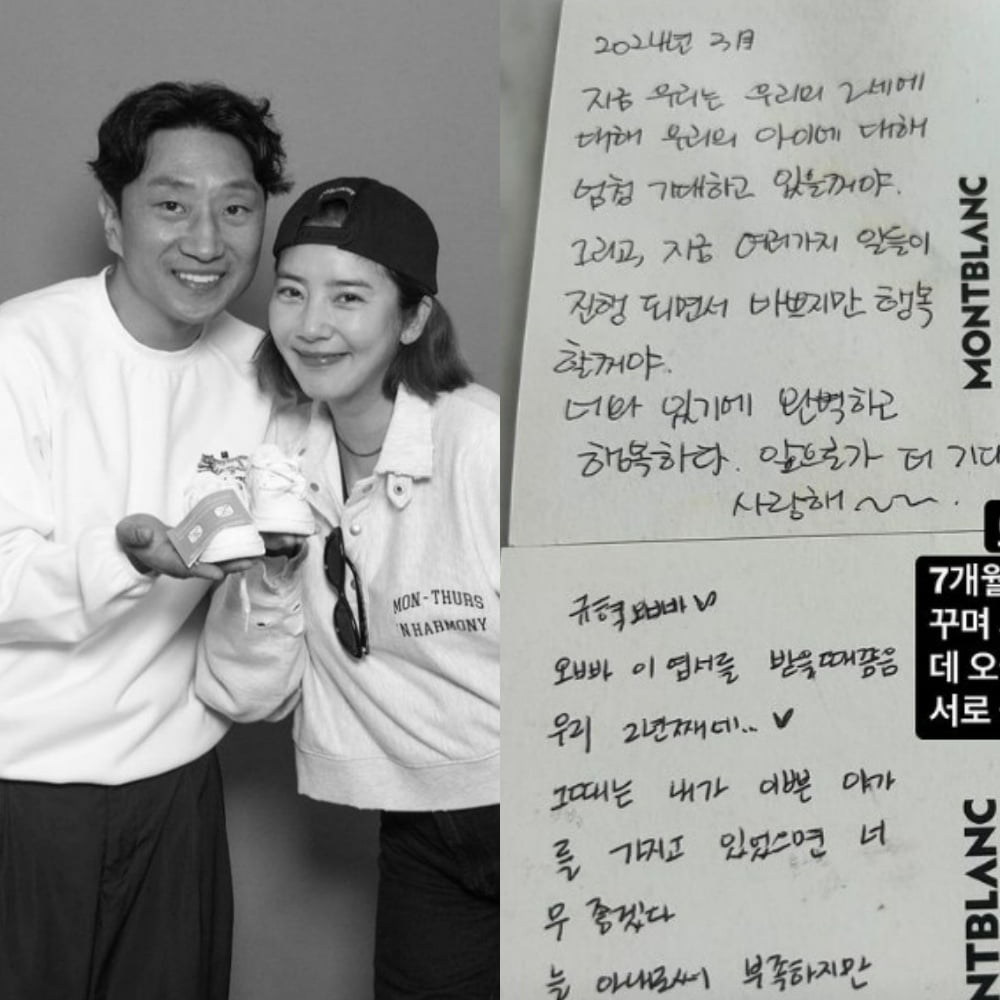 MON-THURS
IN HARMONY
2024년 3月
지금 우리는 우리의 2세에
대해 우리의 아이에 대해
엄청 기대하고 있을꺼야.
그리고, 지금 여러가지 일들이
진행 되면서 바쁘지만 행복
할꺼야.
너와 있기에 완벽하고
행복하다. 앞으로가 더 기대
사랑해 ~~.
MONTBLANC
규혁오빠바♡
오빠바 이 엽서를 받을때쯤음
우리 2년째네.. ♥
그때는 내가 이쁜 아가
를 가지고 있었으면 너
무 좋겠다
늘 아내로써 부족하지만
NTBLANC
7개월
꾸며
데 오
서로